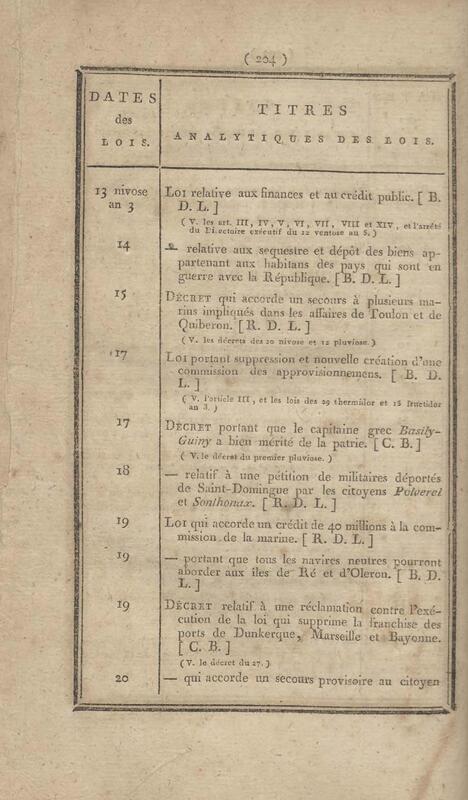 ( 204 )
DATES
des
LOIS.
TITRES
ANALYTIQUES DES LOIS.
13 nivose
an 3
LOI relative aux finances et au crédit public. [ B.
D. L. ]
( V. les art. III, IV, V, VI, VII, VIII et XIV, et l'arrêté
du Directoire exécutif du 22 ventose an 5. )
14
— relative aux sequestre et dépôt des biens ap-
partenant aux habitans des pays qui sont en
guerre avec la République. [ B. D. L. ]
15
DÉCRET qui accorde un secours à plusieurs ma-
rins impliqués dans les affaires de Toulon et de
Quiberon. [ R. D. L. ]
( V. les décrets des 20 nivose et 12 pluviose. )
17
LOI portant suppression et nouvelle création d'une
commission des approvisionnemens. [ B. D.
L. ]
( V. l'article III, et les lois des 29 thermidor et 15 fructidor
an 3. )
17
DÉCRET portant que le capitaine grec Basily-
Guiny a bien mérité de la patrie. [ C. B. ]
( V. le décret du premier pluviose. )
18
— relatif à une pétition de militaires déportés
de Saint-Domingue par les citoyens Polverel
et Sonthonax. [ R. D. L. ]
19
LOI qui accorde un crédit de 40 millions à la com-
mission de la marine. [ R. D. L. ]
19
— portant que tous les navires neutres pourront
aborder aux îles de Ré et d'Oleron. [ B. D.
L. ]
19
DÉCRET relatif à une réclamation contre l'exé-
cution de la loi qui supprime la franchise des
ports de Dunkerque, Marseille et Bayonne.
[ C. B. ]
( V. le décret du 27. )
20
— qui accorde un secours provisoire au citoyen